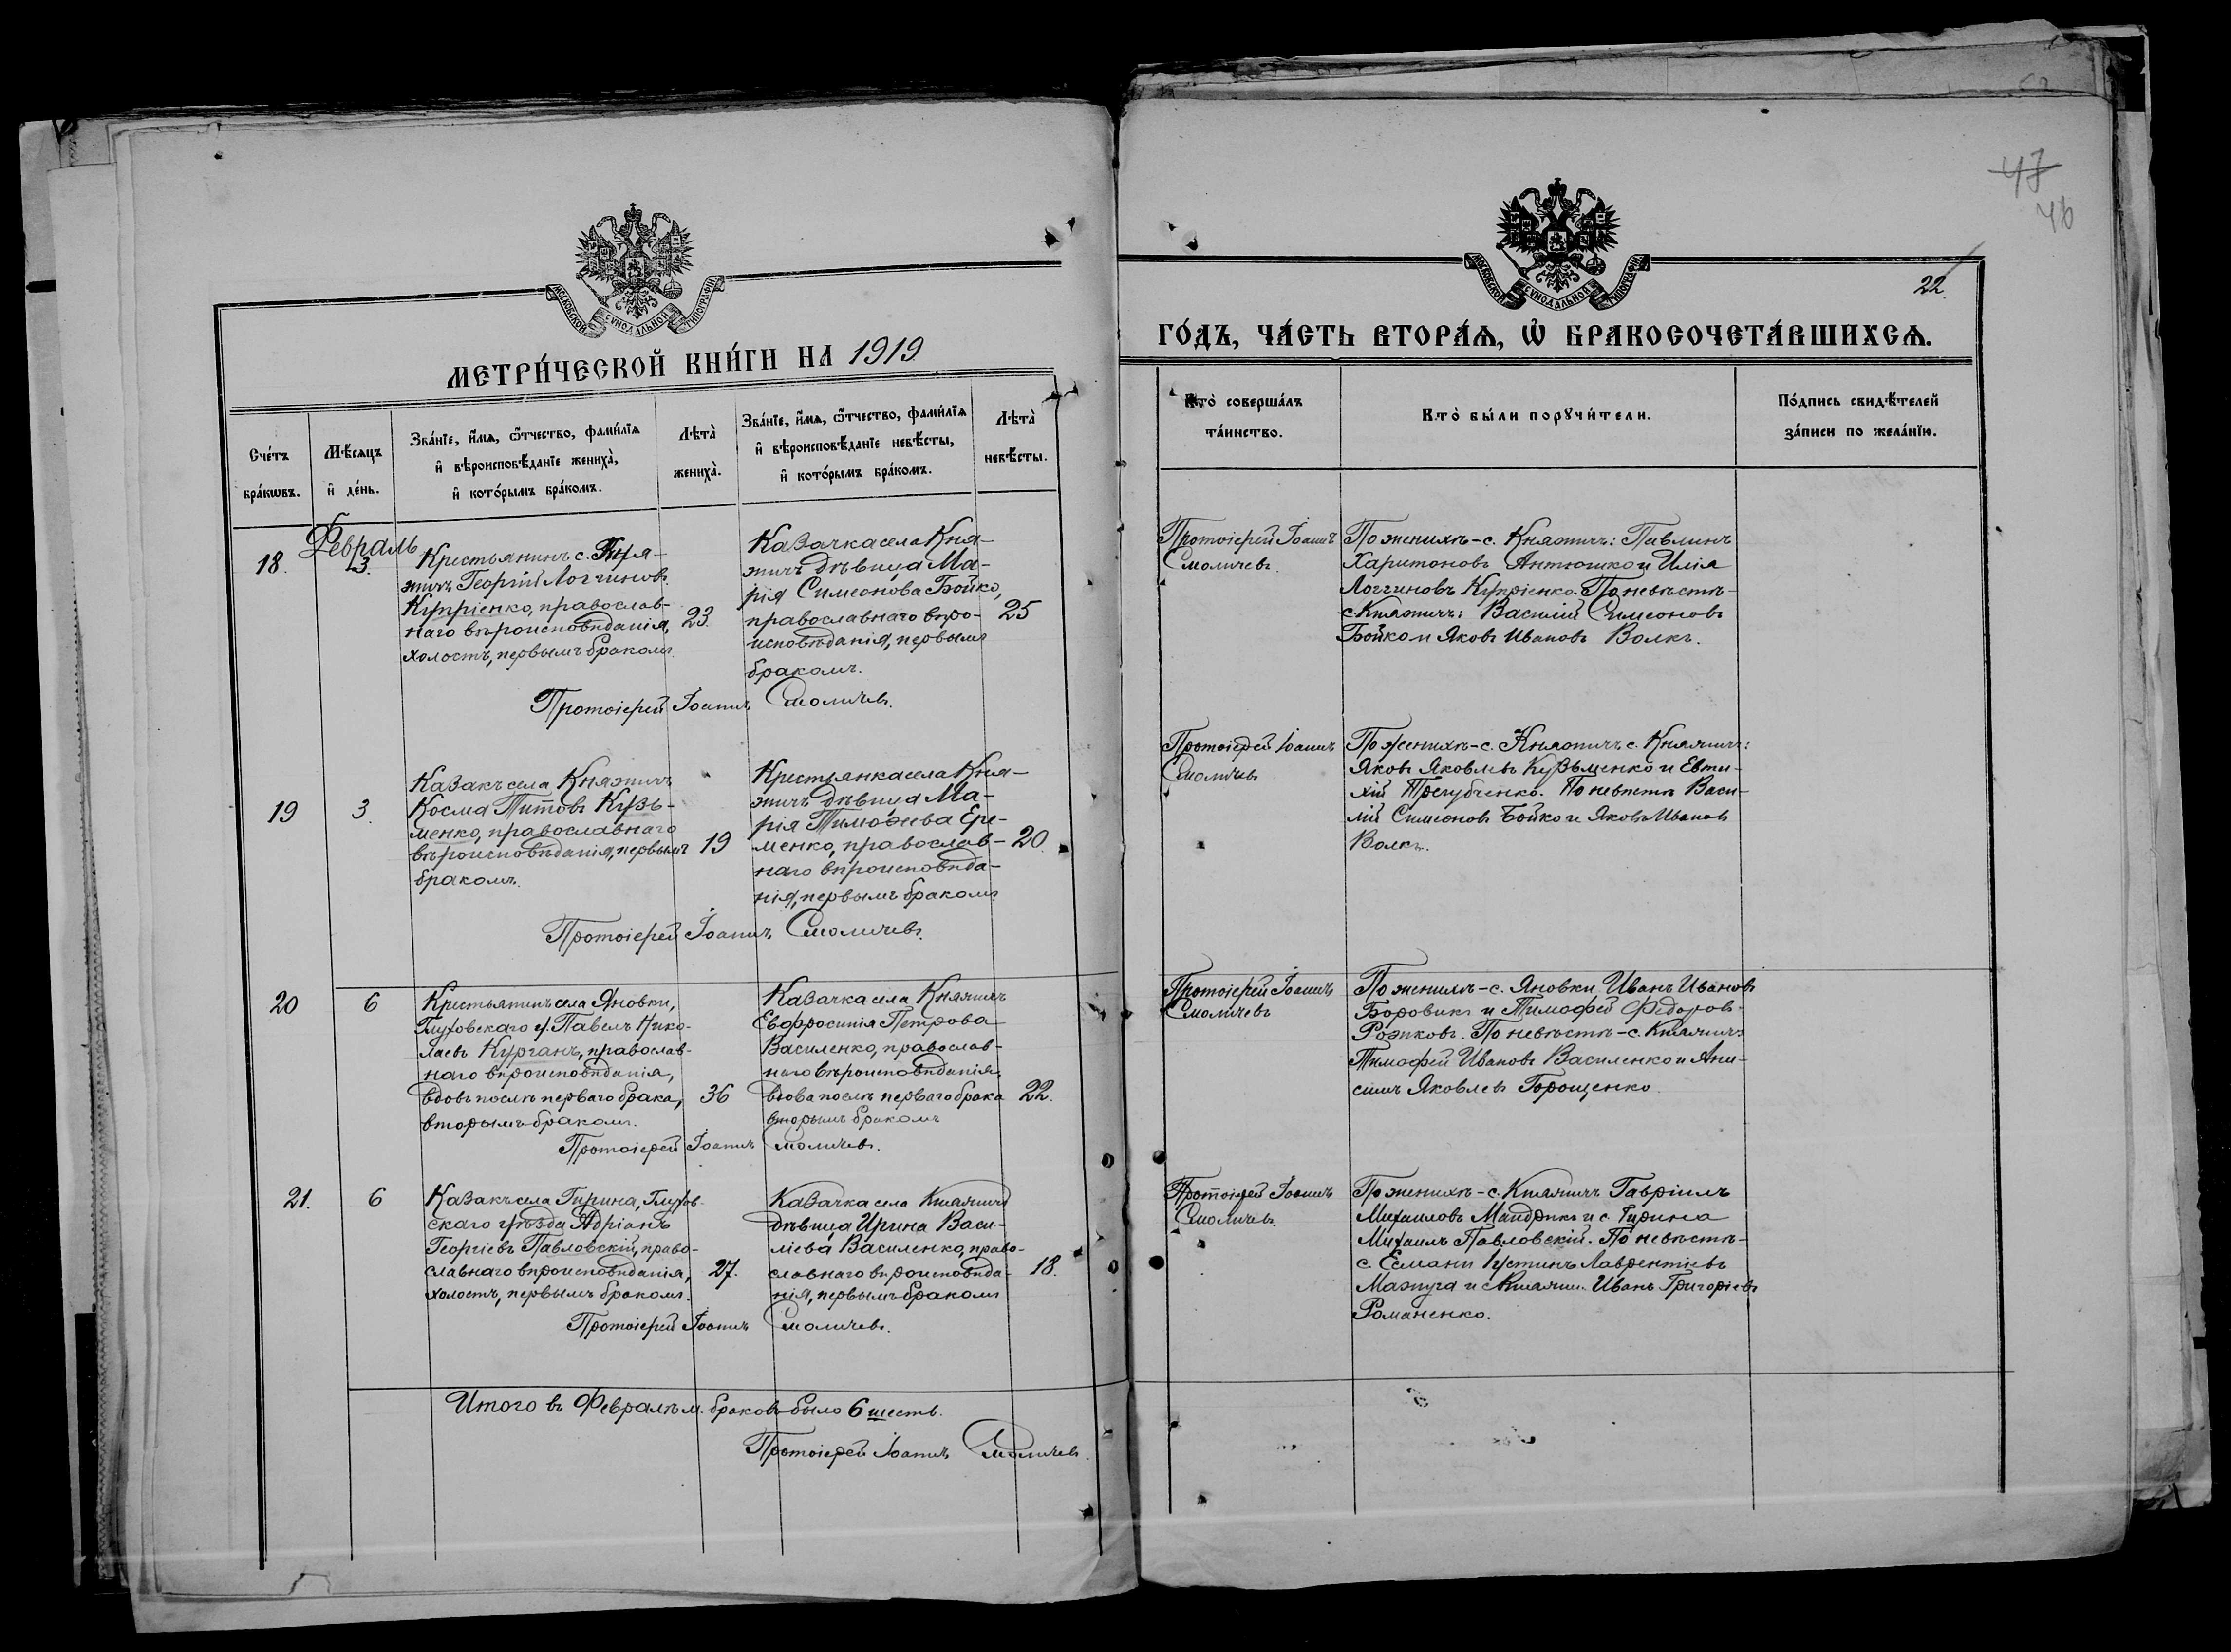 47
46
МОСКОВСКОЙ СѴНОДАЛЬНОЙ ТИПОГРАФІИ
МЕТРИ́ЧЕСКОЙ КНИ́ГИ НА 1919
Сче́тъ бра́кѡвъ.
Мѣ́сяцъ и҆ де́нь.
Зва́нїе, и҆́мѧ, ѻ҆́тчество, фами́лїѧ
и҆ вѣроисповѣ́данїе жениха̀,
и҆ кото́рымъ бра́комъ.
Лѣта̀ жениха̀.
Зва́нїе, и҆́мѧ, ѻ҆́тчество, фами́лїѧ
и҆ вѣроисповѣ́данїе невѣ́сты,
и҆ кото́рымъ бра́комъ.
Лѣта̀ невѣ́сты.
Февраль
18.
3.
Крестьянинъ с. Кня-
жичъ Георгій Логгиновъ
Купріенко, православ-
наго вѣроисповѣданія,
холостъ, первымъ бракомъ
23.
Казачка села Кня-
жичъ дѣвица Ма-
рія Симеонова Бойко,
православнаго вѣро-
исповѣданія, первымъ
бракомъ.
25
Протоіерей Іоаннъ Смоличевъ.
19
3.
Казакъ села Княжичъ
Косма Титовъ Кузь-
менко, православнаго
вѣроисповѣданія, первымъ
бракомъ.
19
Крестьянка села Кня-
жичъ дѣвица Ма-
рія Тимофеева Ере-
менко, православ-
наго вѣроисповѣда-
нія, первымъ бракомъ
20.
Протоіерей Іоаннъ Смоличевъ.
20
6
Крестьянинъ села Яновки,
Глуховскаго у. Павелъ Нико-
лаевъ Курганъ, православ-
наго вѣроисповѣданія,
вдовъ послѣ перваго брака,
вторымъ бракомъ.
36
Казачка села Княжичъ
Евфросинія Петрова
Василенко, православ-
наго вѣроисповѣданія,
вдова послѣ перваго брака
вторымъ бракомъ
22.
Протоіерей Іоаннъ Смоличевъ.
21.
6
Казакъ села Гирина, Глухов-
скаго уѣзда Адріанъ
Георгіевъ Павловскій, право-
славнаго вѣроисповѣданія,
холостъ, первымъ бракомъ.
27.
Казачка села Княжичъ
дѣвица Ирина Васи-
ліева Василенко, право-
славнаго вѣроисповѣда-
нія, первымъ бракомъ
18.
Протоіерей Іоаннъ Смоличевъ.
Итого въ Февралѣ м. браковъ было 6 шесть.
Протоіерей Іоаннъ Смоличевъ.
МОСКОВСКОЙ СѴНОДАЛЬНОЙ ТИПОГРАФІИ
22.
ГО́ДЪ, ЧА́СТЬ ВТОРА́Ѧ, Ѡ҆ БРАКОСОЧЕТА́ВШИХСѦ.
Кто̀ соверша́лъ
та́инство.
Кто̀ бы́ли порꙋчи́тели.
По́дпись свидѣ́телей
за́писи по жела́нїю.
Протоіерей Іоаннъ
Смоличевъ.
По женихѣ - с. Княжичъ: Павлинъ
Харитоновъ Антюшко и Илія
Логгиновъ Купріенко. По невѣстѣ -
с. Княжичъ: Василій Симеоновъ
Бойко и Яковъ Ивановъ Волкъ.
Протоіерей Іоаннъ
Смоличевъ
По женихѣ - с. Княжичъ с. Княжичъ:
Яковъ Яковлевъ Кузьменко и Евти-
хій Трегубченко. По невѣстѣ Васи-
лій Симеоновъ Бойко и Яковъ Ивановъ
Волкъ.
Протоіерей Іоаннъ
Смоличевъ
По женихѣ - с. Яновки Иванъ Ивановъ
Боровикъ и Тимофей Федоровъ
Рожковъ. По невѣстѣ - с. Княжичъ
Тимофей Ивановъ Василенко и Ани-
симъ Яковлевъ Горощенко.
Протоіерей Іоаннъ
Смоличевъ.
По женихѣ - с. Княжичъ Гавріилъ
Михаиловъ Мандрикъ и с. Гирина
Михаилъ Павловскій. По невѣстѣ -
с. Есмани Іустинъ Лаврентіевъ
Мазуга и с. Княжич. Иванъ Григоріевъ
Романенко.